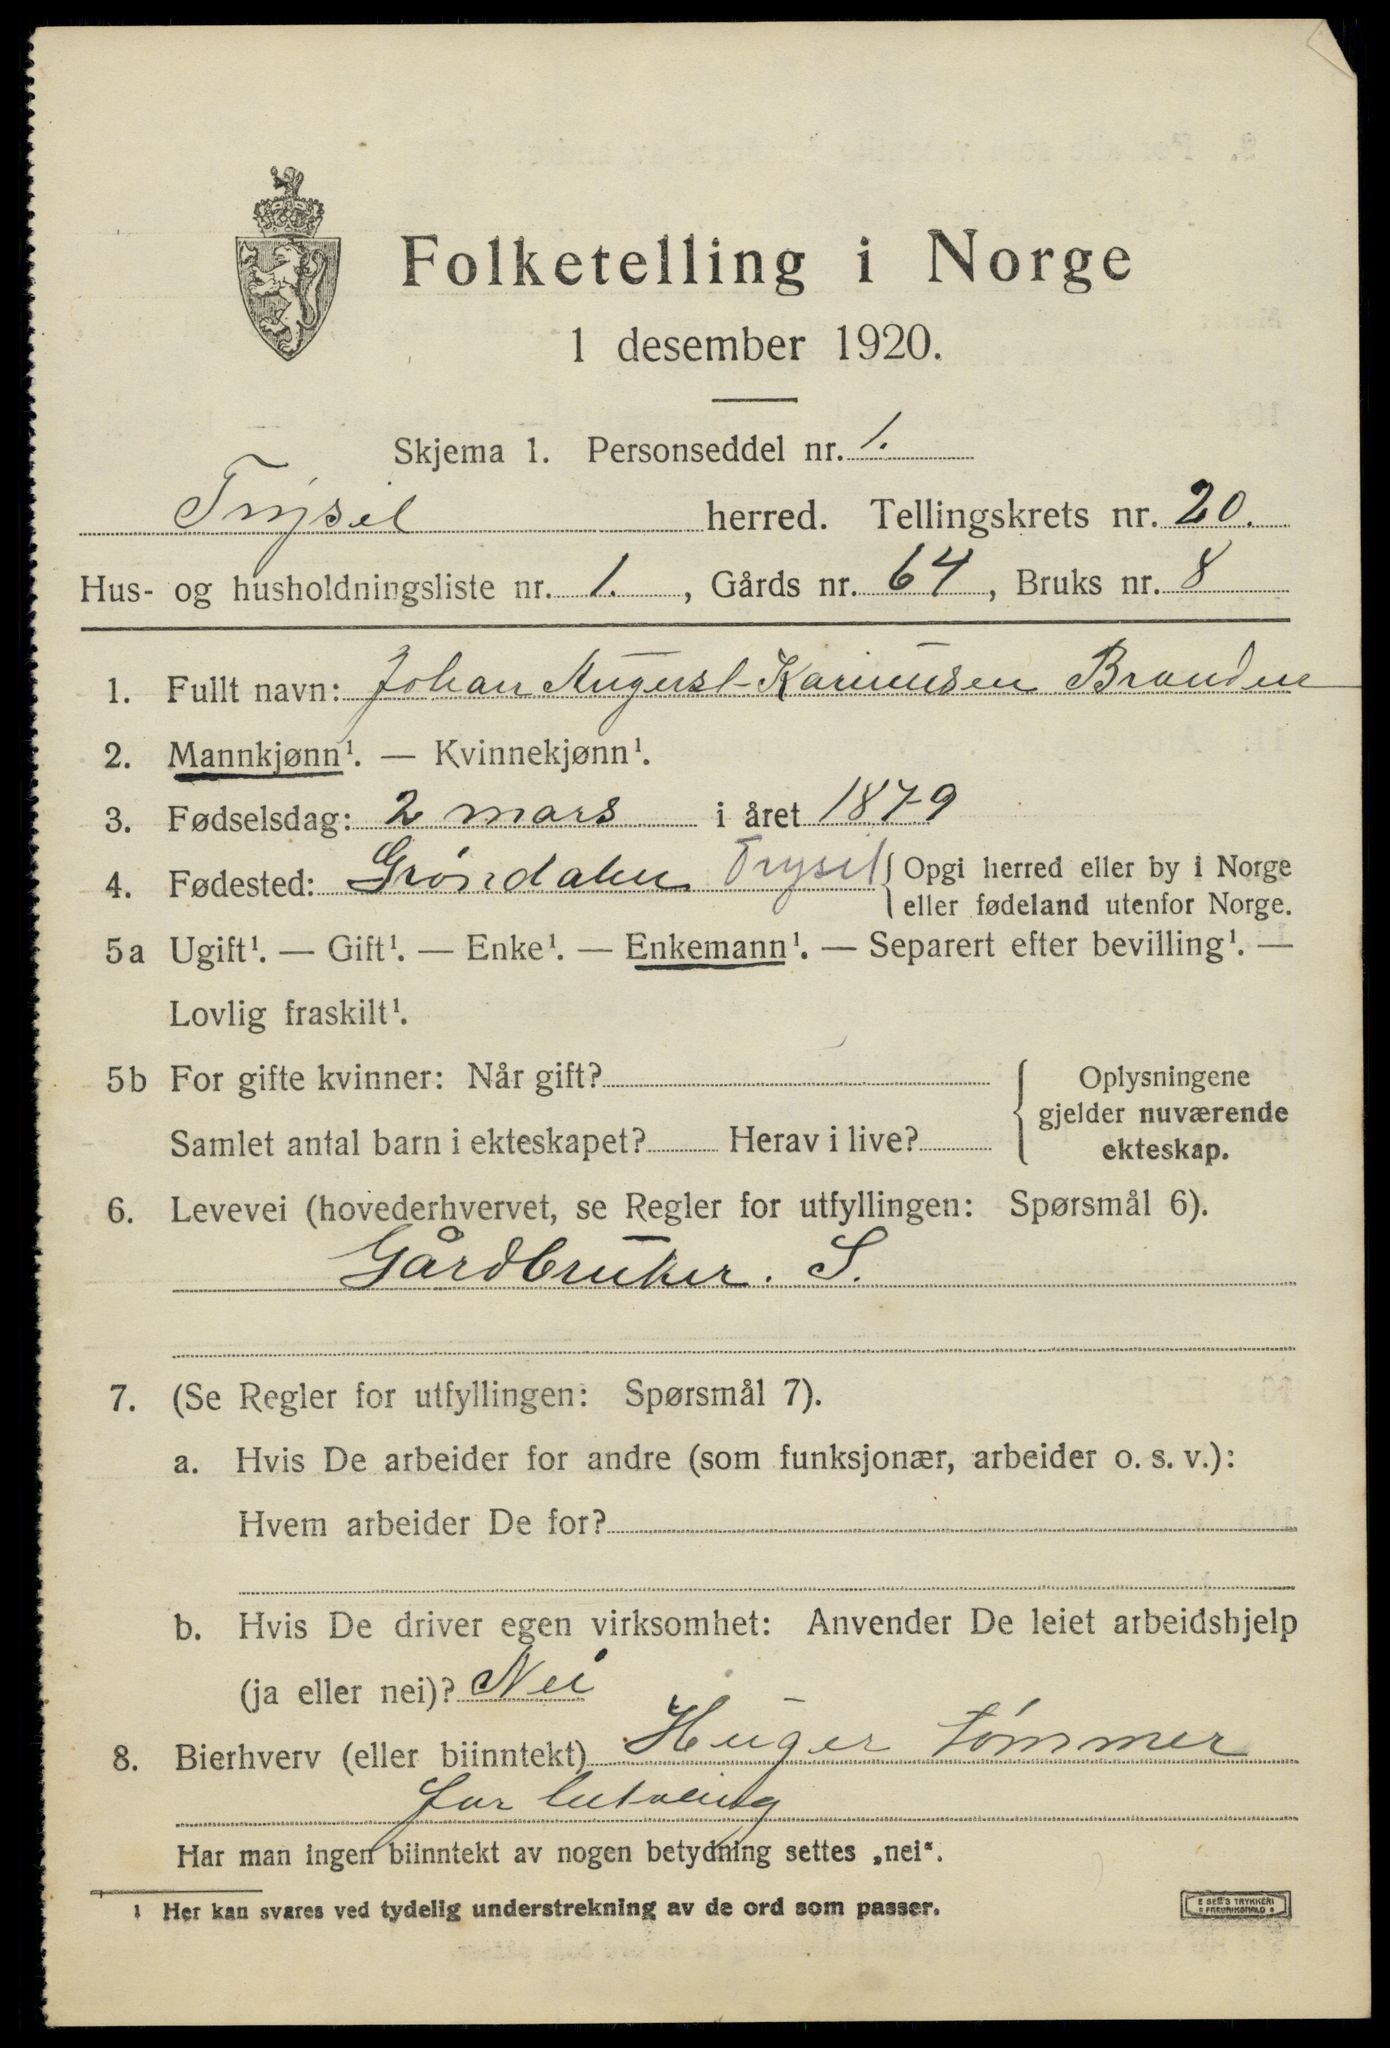 Folketelling i Norge
1 desember 1920.
Skjema 1. Personseddel nr. 1.
Trysil herred. Tellingskrets nr. 20.
Hus- og husholdningsliste nr. 1., Gårds nr. 64, Bruks nr. 8
1. Fullt navn: Johan August Karinusen Branden
2. Mannkjønn¹. — Kvinnekjønn¹.
3. Fødselsdag: 2 mars i året 1879
4. Fødested: Grøndalen Trysil { Opgi herred eller by i Norge
eller fødeland utenfor Norge.
5a Ugift¹. — Gift¹. — Enke¹. — Enkemann¹. — Separert efter bevilling¹. —
Lovlig fraskilt¹.
5b For gifte kvinner: Når gift? { Oplysningene
gjelder nuværende
Samlet antal barn i ekteskapet? Herav i live? ekteskap.
6. Levevei (hovederhvervet, se Regler for utfyllingen: Spørsmål 6).
Gårdbruker. S.
7. (Se Regler for utfyllingen: Spørsmål 7).
a. Hvis De arbeider for andre (som funksjonær, arbeider o. s. v.):
Hvem arbeider De for?
b. Hvis De driver egen virksomhet: Anvender De leiet arbeidshjelp
(ja eller nei)? Nei
8. Bierhverv (eller biinntekt) Huger tømmer
for
Har man ingen biinntekt av nogen betydning settes „nei“.
1 Her kan svares ved tydelig understrekning av de ord som passer.
E SEM'S TRYKKERI
FREDRIKSHALD